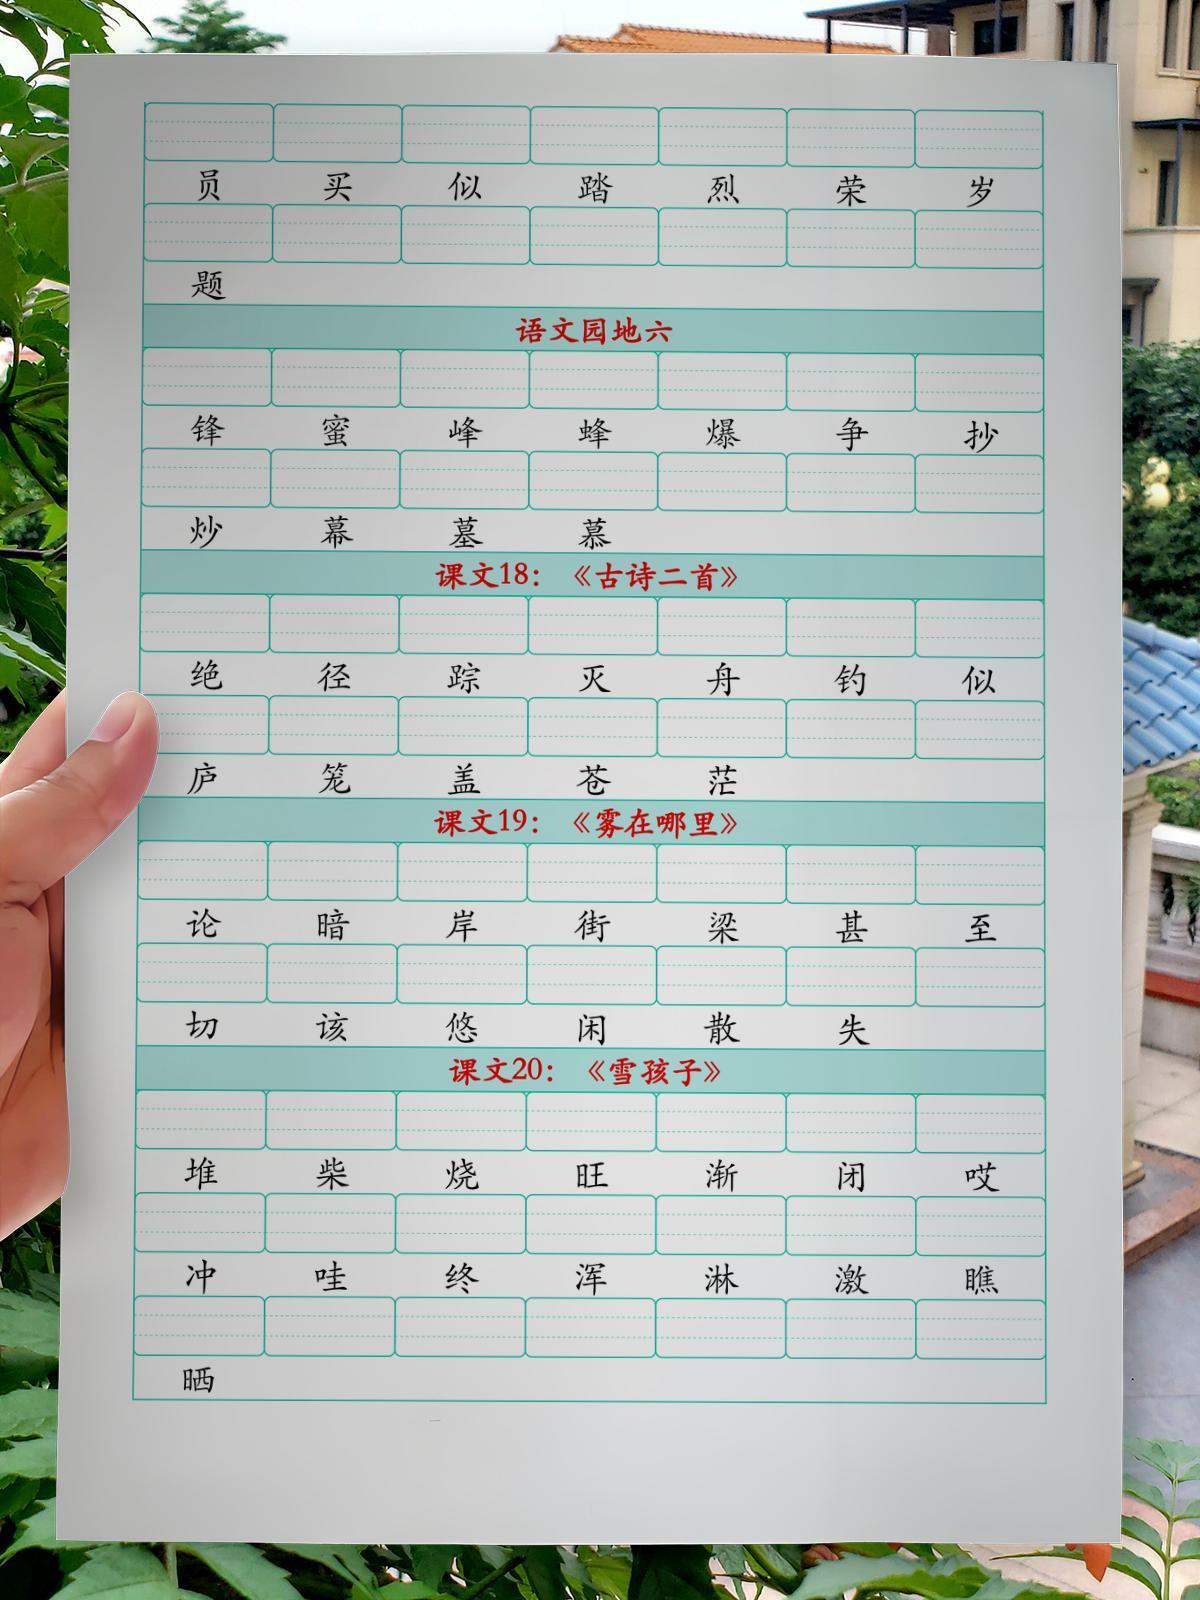 员 买 似 踏 烈 荣 岁
题
语文园地六
锋 蜜 峰 蜂 爆 争 抄
炒 幕 墓 慕
课文18：《古诗二首》
绝 径 踪 灭 舟 钓 似
庐 笼 盖 苍 茫
课文19：《雾在哪里》
论 暗 岸 街 梁 甚 至
切 该 悠 闲 散 失
课文20：《雪孩子》
堆 柴 烧 旺 渐 闭 哎
冲 哇 终 浑 淋 激 瞧
晒